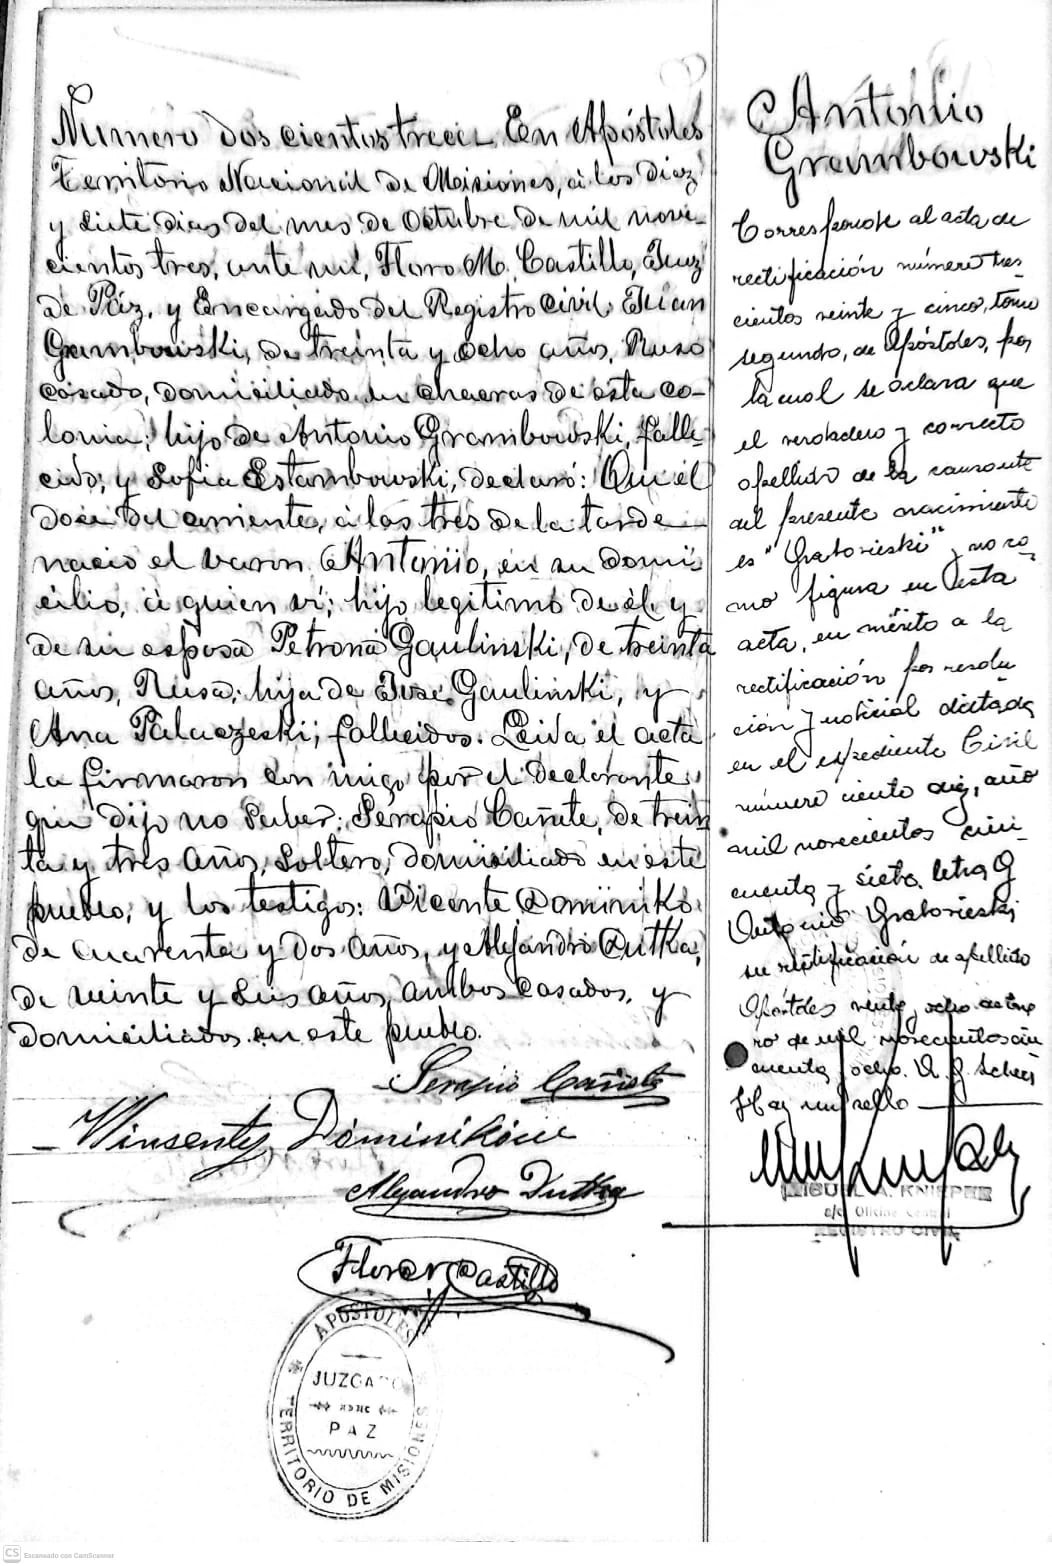 Numero dos cientos trece. En Apóstoles
Territorio Nacional de Misiones, á los diez
y siete dias del mes de Octubre de mil nove-
cientos tres, ante mi, Floro M. Castillo, Juez
de Páz, y Encargado del Registro Civil; Juan
Grambowski, de treinta y ocho años, Ruso
casado, domiciliado en chacras de esta co-
lonia; hijo de Antonio Grambowski, falle-
cido; y Sofia Estambowski, declaró: Que él
doce del corriente, á las tres de la tarde
nació el varon Antonio, en su domi-
cilio, á quien ví; hijo legitimo de él, y
de su esposa Petrona Gaulinski, de treinta
años, Rusa; hija de José Gaulinski, y
Ana Palaczeski, fallecidos. Leida el acta
la firmaron con migo por el declarante
que dijo no saber; Serapio Cañete, de trein
ta y tres años, soltero, domiciliado en este
pueblo; y los testigos: Vicente Dominiko
de cuarenta y dos años, y Alejandro Dutka,
de veinte y seis años, ambos casados, y
domiciliados en este pueblo.
Serapio Cañete
Winsenty Dominików
Alejandro Dutka
Floro M. Castillo
APOSTOLES
JUZGADO
DE
PAZ
TERRITORIO DE MISIONES
Antonio
Grambowski
Corresponde al acta de
rectificación número tres-
cientos veinte y cinco, tomo
segundo, de Apóstoles, por
la cual se aclara que
el verdadero y correcto
apellido de la causante
del presente nacimiento
es "Grabovieski" y no co-
mo figura en esta
acta, en mérito a la
rectificación por resolu-
ción Judicial dictada
en el expediente Civil
número ciento diez, año
mil novecientos cin-
cuenta y siete, letra G
Antonio Grabovieski
su rectificación de apellido
Apóstoles veinte y ocho de ene
ro de mil novecientos cin
cuenta y ocho.
Hay un sello
MIGUEL A. KNIEPHE
a/c Oficina Central
REGISTRO CIVIL
CS Escaneado con CamScanner